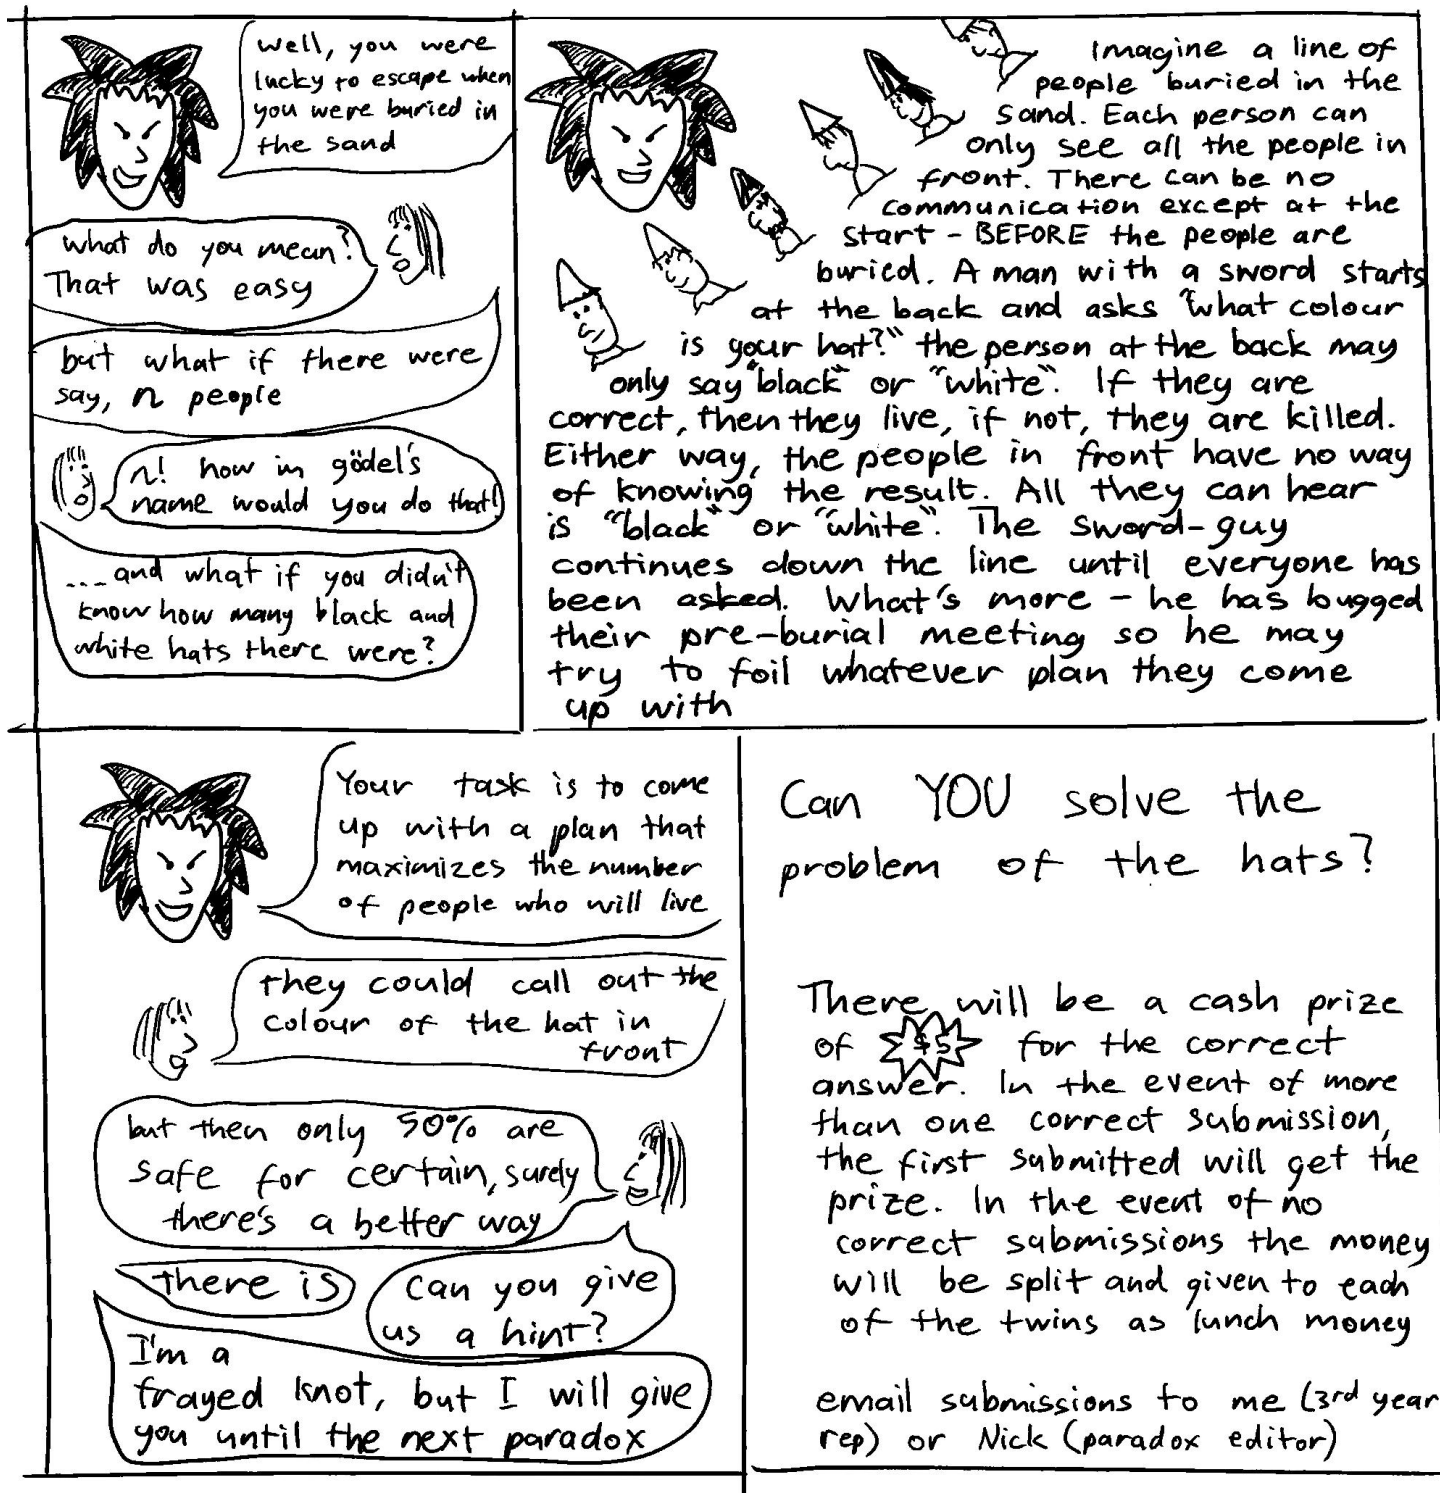 well, you were
lucky to escape when
you were buried in
the sand
what do you mean?
That was easy
but what if there were
say, n people
n! how in gödel's
name would you do that!
...and what if you didn't
know how many black and
white hats there were?
Imagine a line of
people buried in the
sand. Each person can
only see all the people in
front. There can be no
communication except at the
start - BEFORE the people are
buried. A man with a sword starts
at the back and asks "what colour
is your hat?" the person at the back may
only say "black" or "white". If they are
correct, then they live, if not, they are killed.
Either way, the people in front have no way
of knowing the result. All they can hear
is "black" or "white". The sword-guy
continues down the line until everyone has
been asked. What's more - he has bugged
their pre-burial meeting so he may
try to foil whatever plan they come
up with
Your task is to come
up with a plan that
maximizes the number
of people who will live
they could call out the
colour of the hat in
front
but then only 50% are
safe for certain, surely
there's a better way
there is
can you give
us a hint?
I'm a
frayed knot, but I will give
you until the next paradox
Can YOU solve the
problem of the hats?
There will be a cash prize
of $5 for the correct
answer. In the event of more
than one correct submission,
the first submitted will get the
prize. In the event of no
correct submissions the money
will be split and given to each
of the twins as lunch money
email submissions to me (3rd year
rep) or Nick (paradox editor)